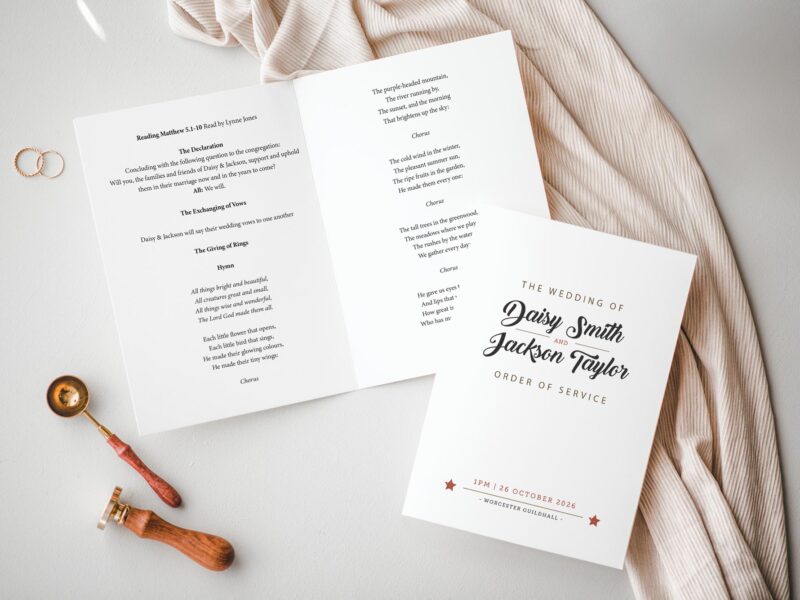 Reading Matthew 5.1-10 Read by Lynne Jones
The Declaration
Concluding with the following question to the congregation:
Will you, the families and friends of Daisy & Jackson, support and uphold
them in their marriage now and in the years to come?
All: We will.
The Exchanging of Vows
Daisy & Jackson will say their wedding vows to one another
The Giving of Rings
Hymn
All things bright and beautiful,
All creatures great and small,
All things wise and wonderful,
The Lord God made them all.
Each little flower that opens,
Each little bird that sings,
He made their glowing colours,
He made their tiny wings:
Chorus
The purple-headed mountain,
The river running by,
The sunset, and the morning
That brightens up the sky:
Chorus
The cold wind in the winter,
The pleasant summer sun,
The ripe fruits in the garden,
He made them every one:
Chorus
The tall trees in the greenwood,
The meadows where we play
The rushes by the water
We gather every day
Chorus
He gave us eyes
And lips that
How great is
Who has
THE WEDDING OF
Daisy Smith
AND
Jackson Taylor
ORDER OF SERVICE
1PM | 26 OCTOBER 2026
- WORCESTER GUILDHALL -